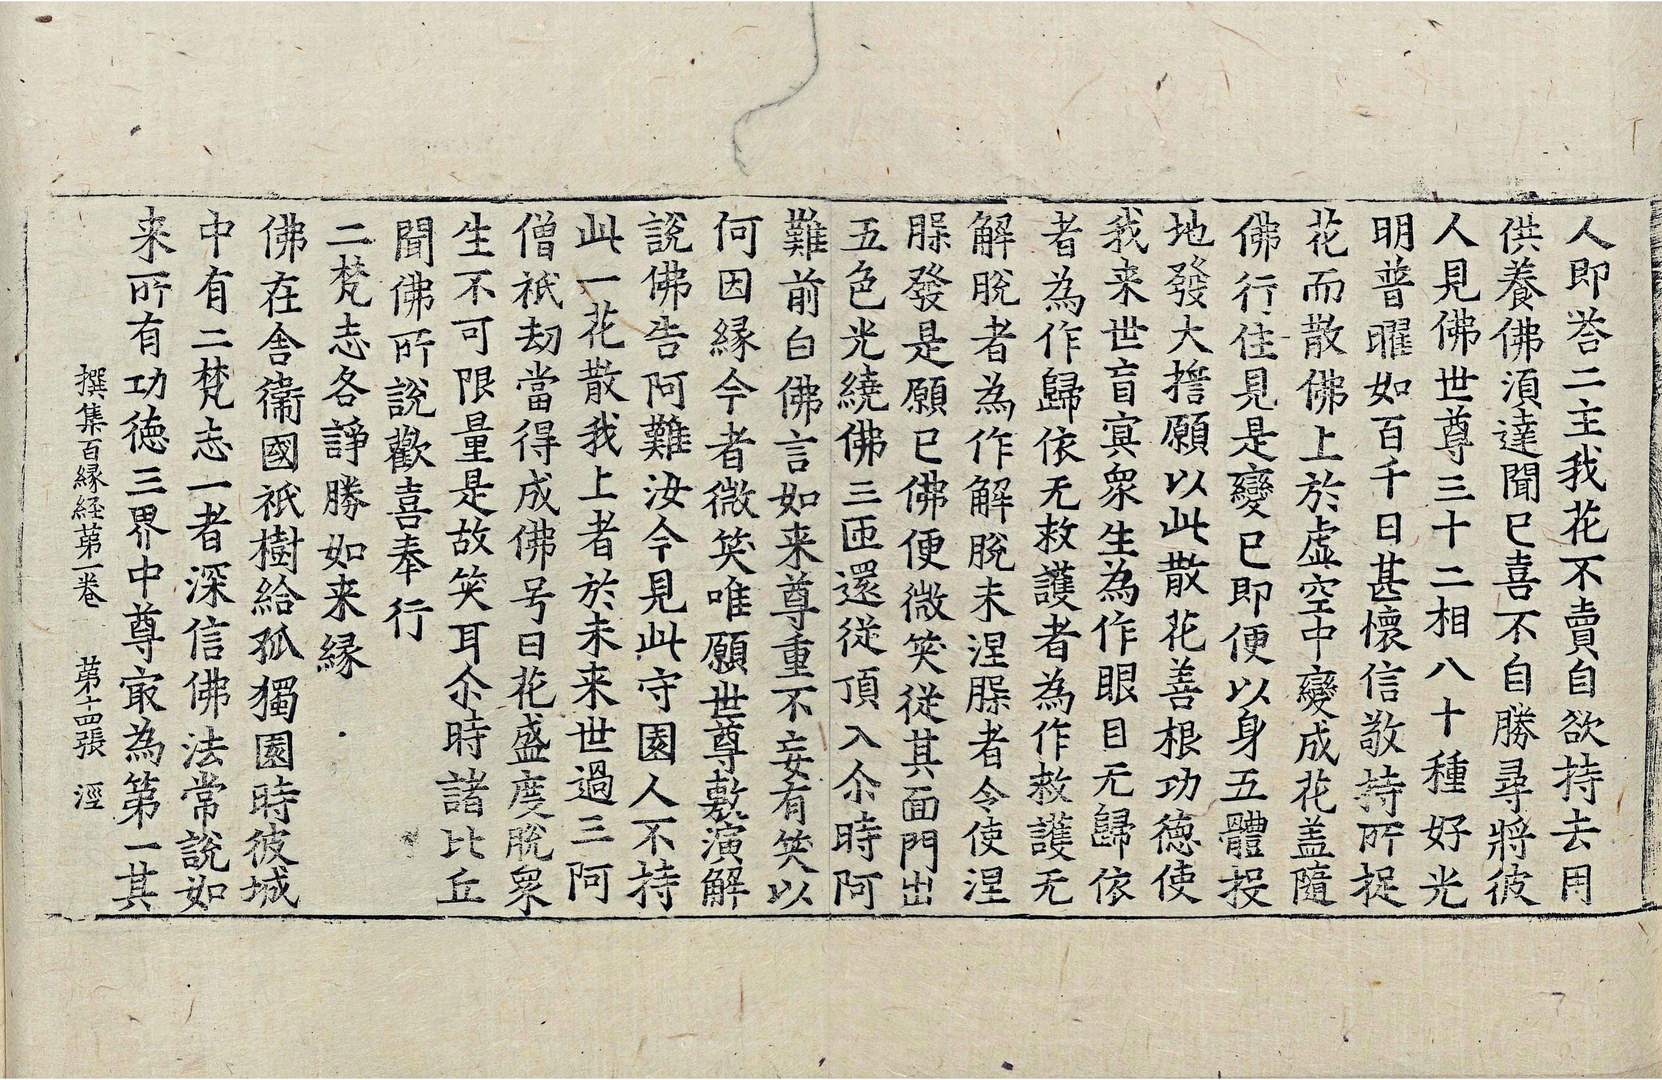 人即荅二主我花不賣自欲持去用
供養佛湏達聞已喜不自勝尋將彼
人見佛世尊三十二相八十種好光
明普曜如百千日甚懷信敬持所捉
花而散佛上於虛空中變成花盖隨
佛行住見是變已即便以身五體投
地發大擔願以此散花善根功德使
我来世盲㝠衆生為作眼目无歸依
者為作歸依无救護者為作救護无
解脫者為作解脫未涅𣵀者令使涅
𣵀發是願已佛便微笑從其面門出
五色光繞佛三匝還從頂入尒時阿
難前白佛言如来尊重不妄有笑以
何因緣今者微笑唯願世尊敷演解
說佛告阿難汝今見此守園人不持
此一花散我上者於未来世過三阿
僧祇劫當得成佛号曰花盛度脫衆
生不可限量是故笑耳尒時諸比丘
聞佛所說歡喜奉行
二梵志各諍勝如来緣
佛在舍衞國祇樹給孤獨園時彼城
中有二梵志一者深信佛法常說如
来所有功德三界中尊㝡為第一其
撰集百緣経苐一卷 苐十四張 涇